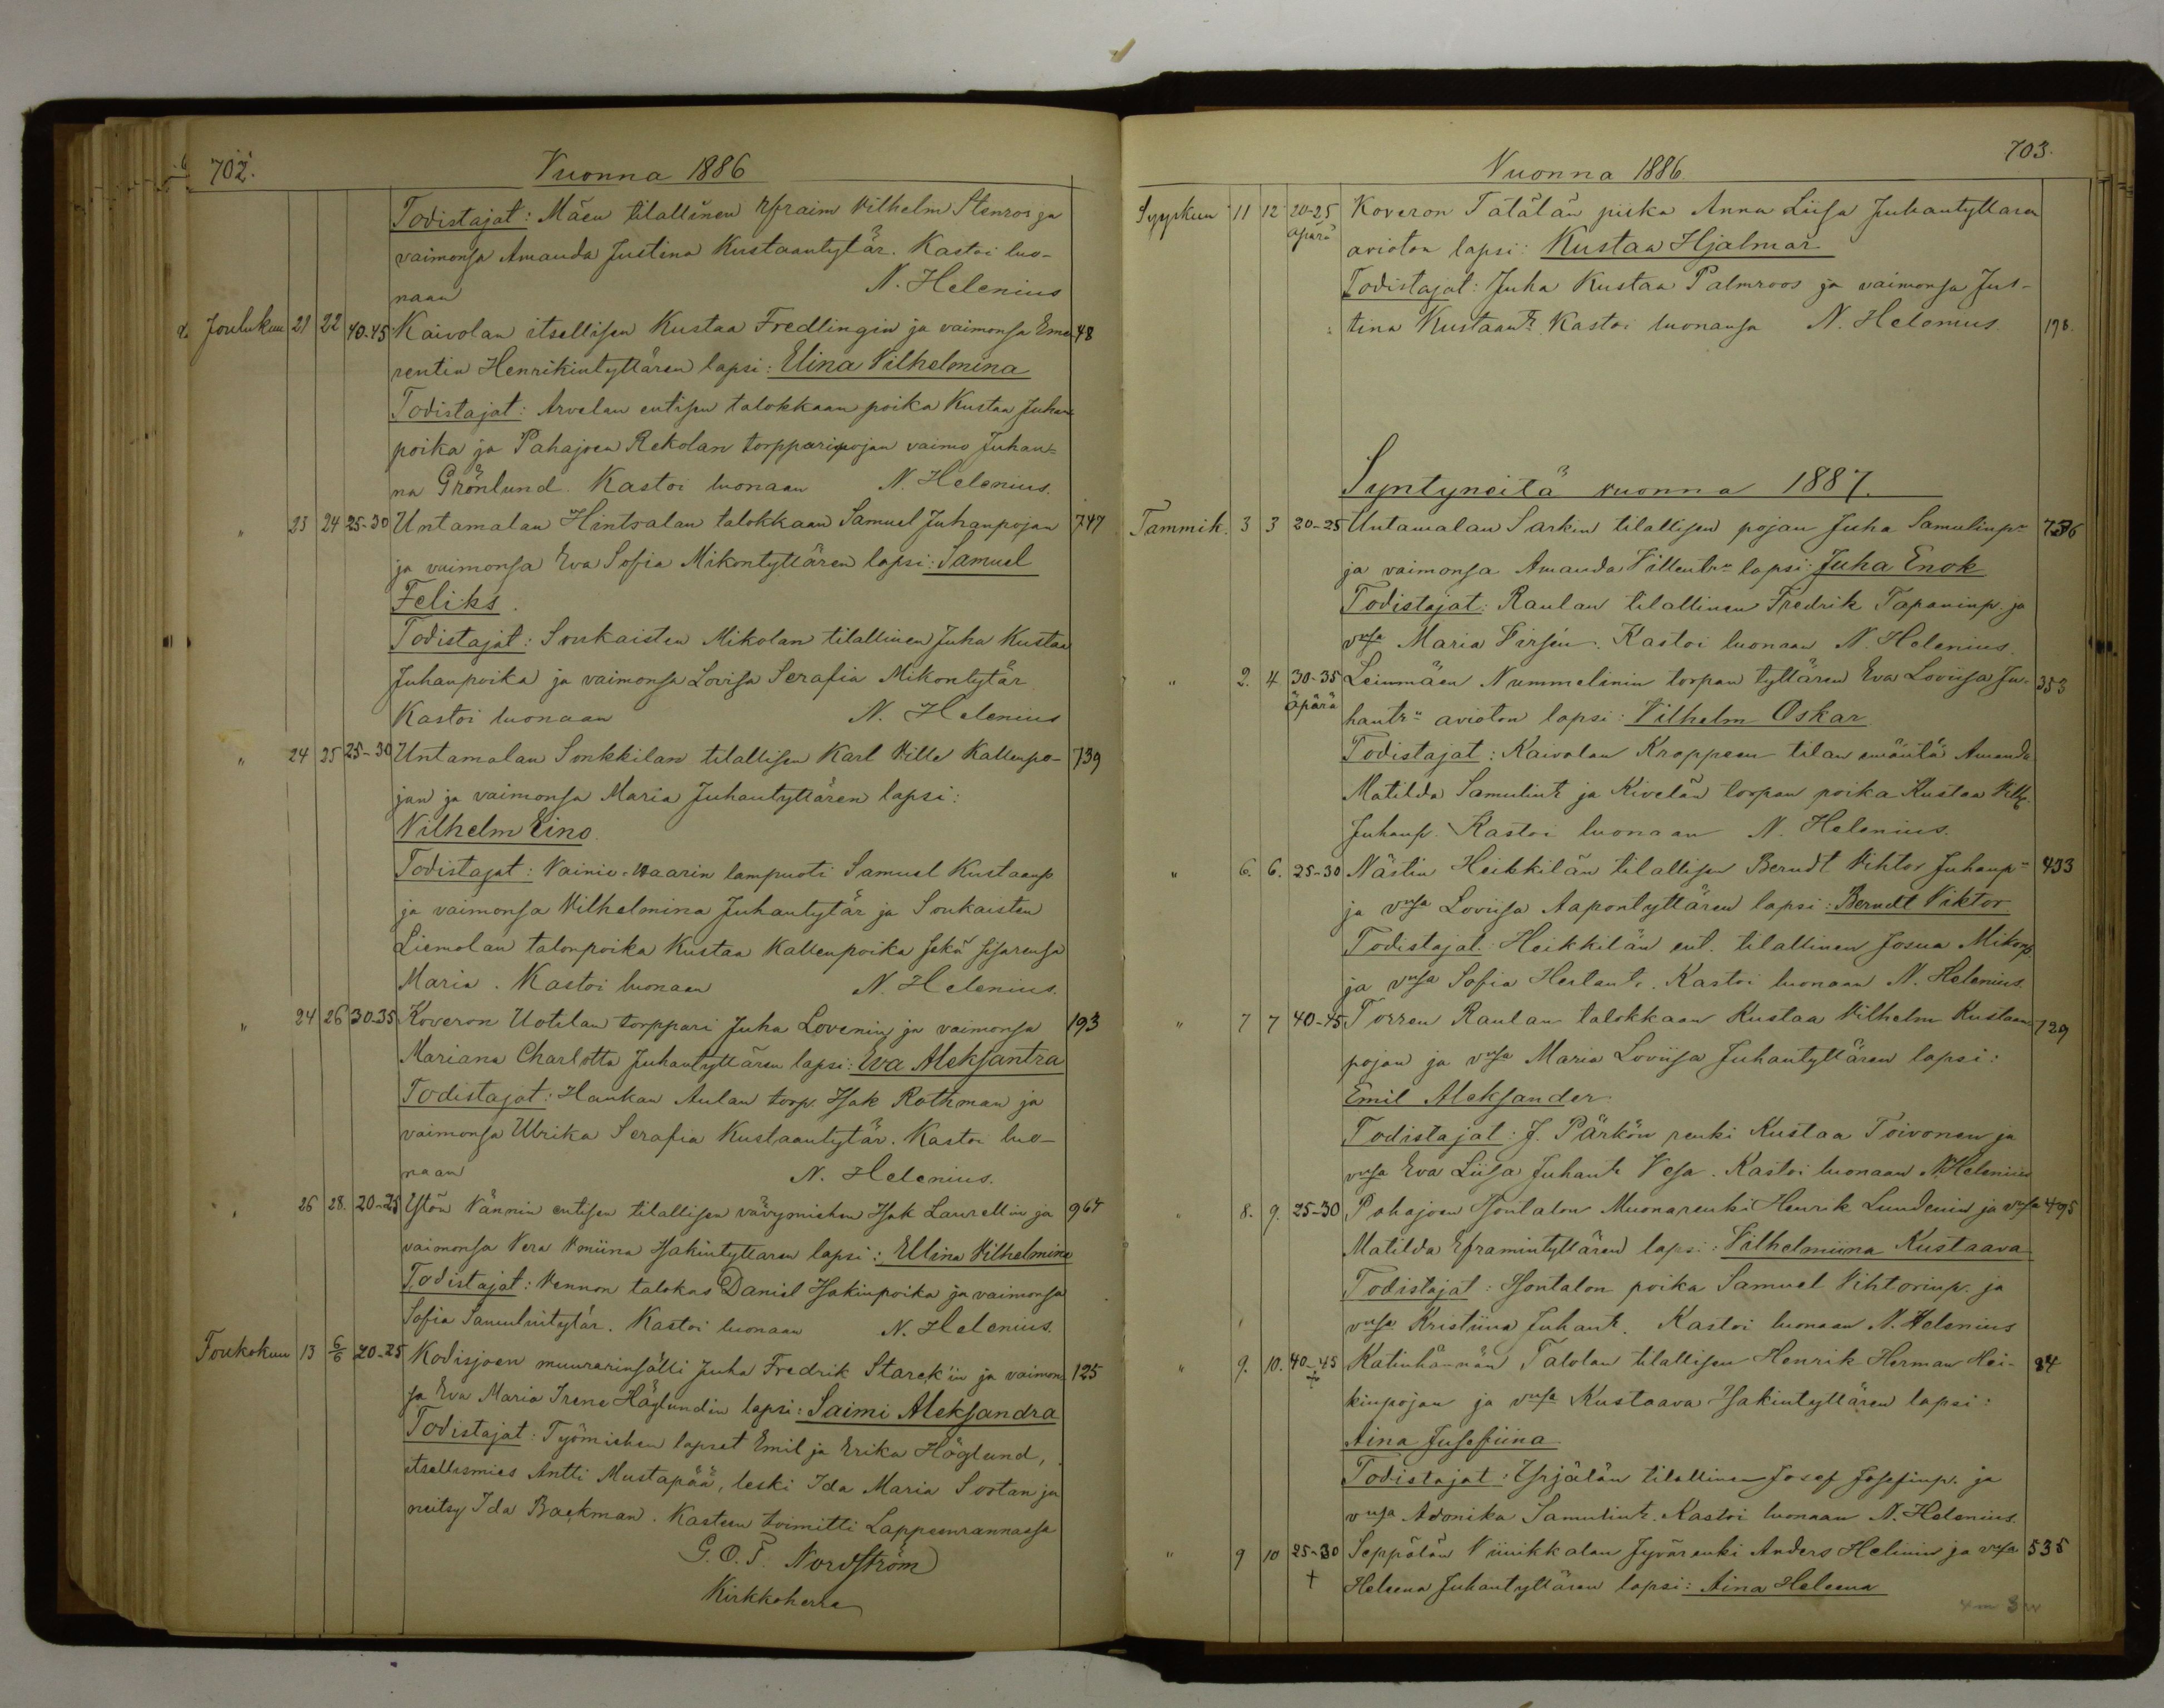 702.
Vuonna 1886
Todistajat: Mäen tilallinen Efraim Vilhelm Stenros ja
vaimonsa Amanda Justina Kustaantytär. Kastoi luo-
naan N. Helenius
Joulukuu 21 22 40-45 Kaivolan itsellisen Kustaa Fredlingin ja vaimonsa Eme- 48
rentia Henrikintyttären lapsi: Elina Vilhelmina
Todistajat: Arvelan entisen talokkaan poika Kustaa Juhan
poika ja Pahajoen Rekolan torpparipojan vaimo Juhan-
na Grönlund. Kastoi luonaan N. Helenius.
" 23 24 25-30 Untamalan Hintsalan talokkaan Samuel Juhanpojan 747
ja vaimonsa Eva Sofia Mikontyttären lapsi: Samuel
Feliks.
Todistajat: Soukaisten Mikolan tilallinen Juha Kustaa
Juhanpoika ja vaimonsa Lovisa Serafia Mikontytär
Kastoi luonaan N. Helenius
" 24 25 25-30 Untamalan Sonkkilan tilallisen Karl Ville Kallenpo- 739
jan ja vaimonsa Maria Juhantyttären lapsi:
Vilhelm Eino.
Todistajat: Vainio-Vaarin lampuoti Samuel Kustaanp
ja vaimonsa Vilhelmina Juhantytär ja Soukaisten
Liemolan talonpoika Kustaa Kallenpoika sekä sisarensa
Maria. Kastoi luonaan N. Helenius.
" 24 26 30-35 Koveron Uotilan torppari Juha Lovenin ja vaimonsa 193
Mariana Charlotta Juhantyttären lapsi: Eva Aleksantra
Todistajat: Haukan Aulan torp. Isak Rothman ja
vaimonsa Ulrika Serafia Kustaantytär. Kastoi luo-
naan N. Helenius.
" 26 28. 20-25 Ystön Vännin entisen tilallisen vävymiehen Isak Laurellin ja 964
vaimonsa Vera Vmiina Isakintyttären lapsi: Ellina Vilhelmina
Todistajat: Vennon talokas Daniel Isakinpoika ja vaimonsa
Sofia Samulintytär. Kastoi luonaan N. Helenius.
Toukokuu 13 6/6 20-25 Kodisjoen muurarinsälli Juha Fredrik Starck'in ja vaimon- 125
sa Eva Maria Irene Häglundin lapsi: Saimi Aleksandra
Todistajat: Työmiehen lapset Emil ja Erika Höglund,
itsellismies Antti Mustapää, leski Ida Maria Sortan ja
neitsy Ida Backman. Kasteen toimitti Lappeenrannassa
G. O. T. Nordström
Kirkkoherra
703.
Vuonna 1886
Syyskuu 11 12 20-25 Koveron Tätälän piika Anna Liisa Juhantyttären
äpärä avioton lapsi: Kustaa Hjalmar
Todistajat: Juha Kustaa Palmroos ja vaimonsa Jus-
tina Kustaantr. Kastoi luonansa N. Helenius. 198.
Syntyneitä vuonna 1887.
Tammik. 3 3 20-25 Untamalan Sarkin tilallisen pojan Juha Samulinpn 736
ja vaimonsa Amanda Villentrn lapsi: Juha Enok
Todistajat: Raulan tilallinen Fredrik Tapaninp. ja
vnsa Maria Virsén. Kastoi luonaan N. Helenius.
" 2. 4 30-35 Leinmäen Nummelinin torpan tyttären Eva Loviisa Ju- 353
äpärä hantrn avioton lapsi: Vilhelm Oskar
Todistajat: Kaivolan Kroppesen tilan emäntä Amanda
Matilda Samulintr ja Kivelän torpan poika Kustaa Vilh.
Juhanp. Kastoi luonaan N. Helenius.
" 6. 6. 25-30 Nästin Heikkilän tilallisen Berndt Vihtor Juhanpn 433
ja vnsa Loviisa Aapontyttären lapsi: Berndt Viktor
Todistajat: Heikkilän ent. tilallinen Josua Mikonp
ja vnsa Sofia Heslantr. Kastoi luonaan N. Helenius.
" 7 7 40-45 Torren Raulan talokkaan Kustaa Vilhelm Kustaan 729
pojan ja vnsa Maria Loviisa Juhantyttären lapsi:
Emil Aleksander
Todistajat: J. Pärkön renki Kustaa Toivonen ja
vnsa Eva Liisa Juhantr Vesa. Kastoi luonaan N. Helenius
" 8. 9. 25-30 Pahajoen Isontalon Muonarenki Henrik Lundenin ja vnsa 495
Matilda Eframintyttären lapsi: Vilhelmiina Kustaava
Todistajat: Isontalon poika Samuel Vihtorinp. ja
vnsa Kristiina Juhantr. Kastoi luonaan N. Helenius
" 9. 10. 40-45 Katinhännän Talolan tilallisen Henrik Herman Hei- 84
kinpojan ja vnsa Kustaava Isakintyttären lapsi:
Aina Jusefiina
Todistajat: Yrjälän tilallinen Josef Josefinp. ja
vnsa Adonika Samulintr. Kastoi luonaan N. Helenius.
" 9 10 25-30 Seppälän Viinikkalan Jyvärenki Anders Helinin ja vnsa 535
† Heleena Juhantyttären lapsi: Aina Heleena